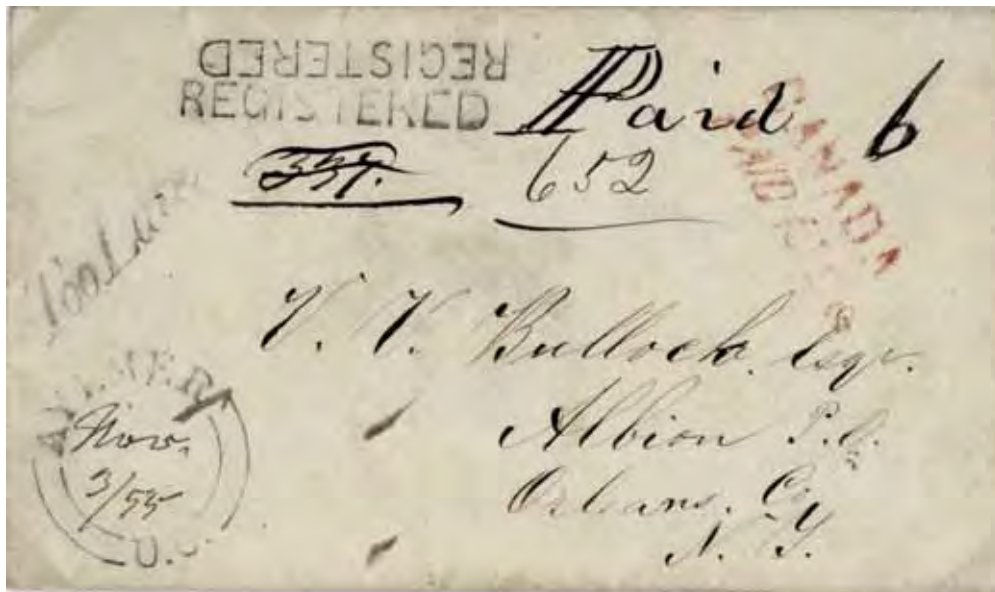 REGISTERED
REGISTERED
Paid 6
CANADA
PAID 6
652
V. V. Bullock. Esqr.
Albion P.O.
Orleans. Co
N. Y.
AYLMER
Nov.
3/55
U.C.